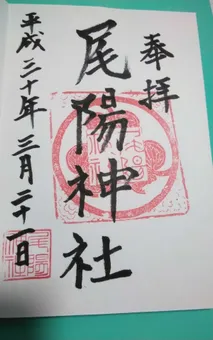 奉拝
尾陽神社
平成三十年三月二十一日